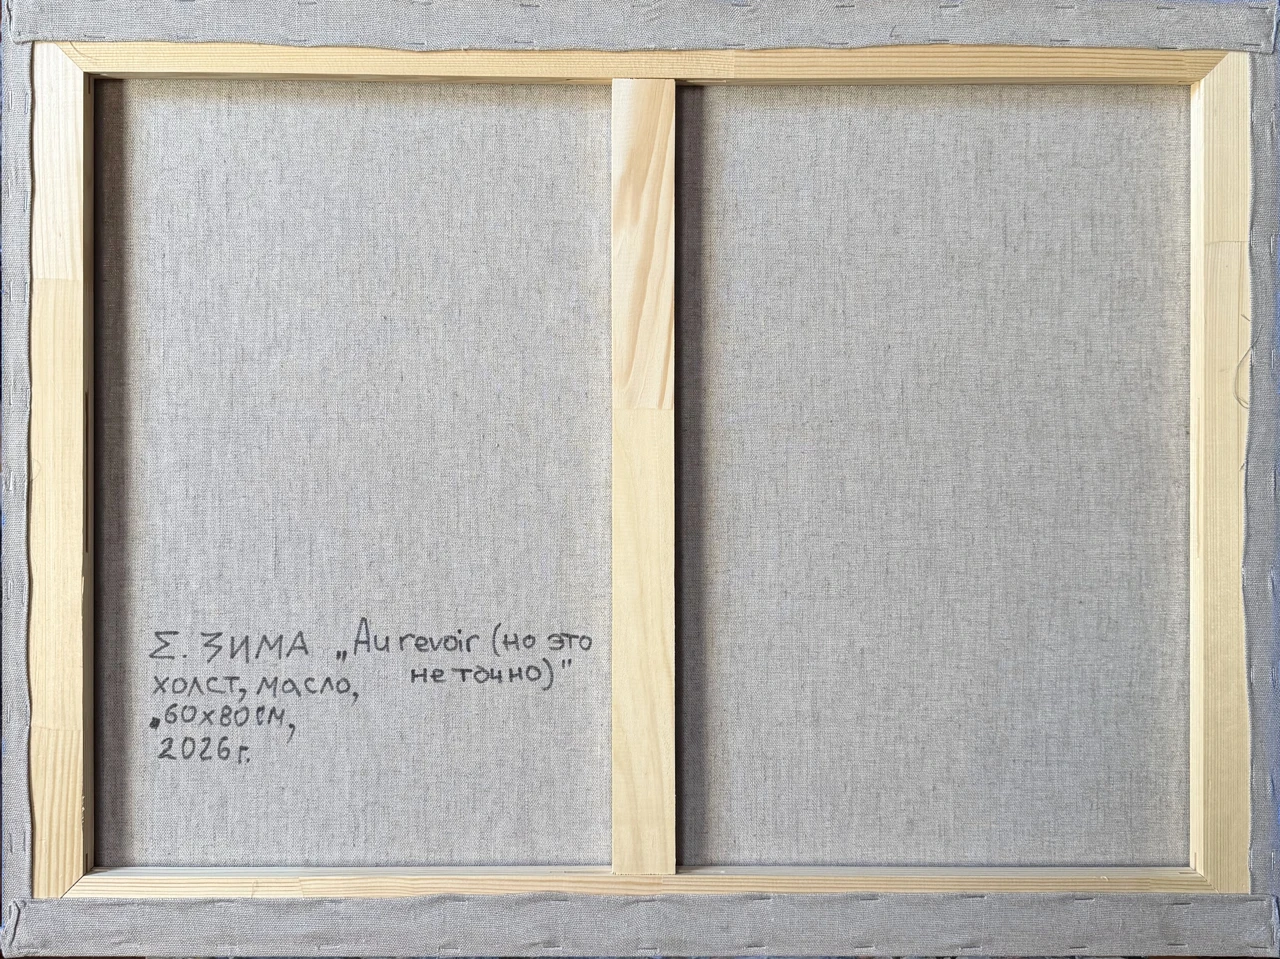 Σ. ЗИМА „Au revoir (но это
не точно)"
холст, масло,
60х80см,
2026г.